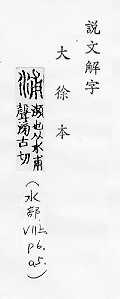 説文解字
大徐本
浦 瀕也从水甫
聲滂古切
(水部
VII上
p6.
a5.)